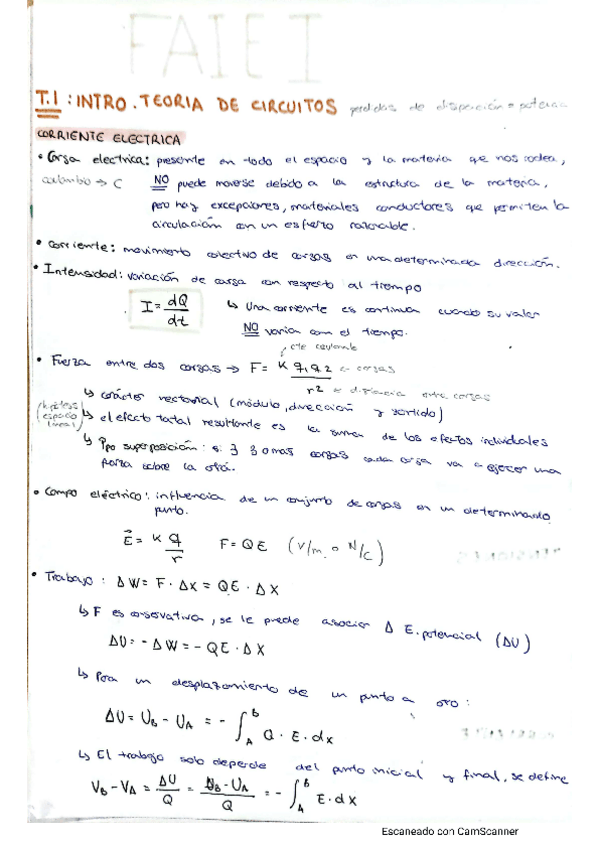 FAIE I
T.1: INTRO. TEORIA DE CIRCUITOS perdidas de disipación = potencia
CORRIENTE ELECTRICA
• Carga electrica: presente en todo el espacio y la materia que nos rodea,
coulombio → C NO puede moverse debido a la estructura de la materia,
pero hay excepciones, materiales conductores que permiten la
circulación con un esfuerzo razonable.
• Corriente: movimiento colectivo de cargas en una determinada dirección.
• Intensidad: variación de carga con respecto al tiempo
I = dQ/dt ↳ Una corriente es continua cuando su valor
NO varia con el tiempo.
cte coulomb
• Fuerza entre dos cargas → F = K q1 q2 ← cargas
r2 ← distancia entre cargas
↳ carácter vectorial (módulo, dirección y sentido)
(hipótesis espacio lineal) ↳ el efecto total resultante es la suma de los efectos individuales
↳ Ppo superposición: si ∃ 3 o mas cargas cada carga va a ejercer una
fuerza sobre la otra.
• Campo eléctrico: influencia de un conjunto de cargas en un determinado
punto.
E⃗ = K q/r F = QE (V/m o N/C)
• Trabajo: ΔW = F · ΔX = QE · ΔX
↳ F es conservativa, se le puede asociar Δ E. potencial (ΔU)
ΔU = - ΔW = - QE · ΔX
↳ Para un desplazamiento de un punto a otro:
ΔU = UB - UA = - ∫AB Q · E · dx
↳ El trabajo solo depende del punto inicial y final, se define
VB - VA = ΔU/Q = UB - UA/Q = - ∫AB E · dX
Escaneado con CamScanner